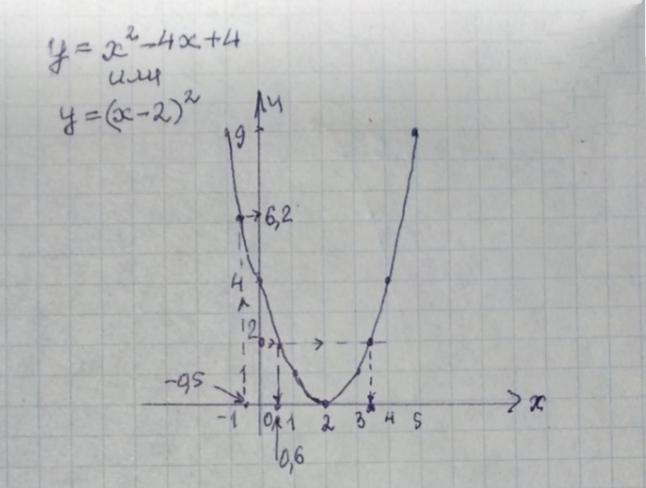 y = x² - 4x + 4
или
y = (x - 2)²
y
9
6,2
4
2
1
-0,5
-1 0 1 2 3 4 5 x
0,6